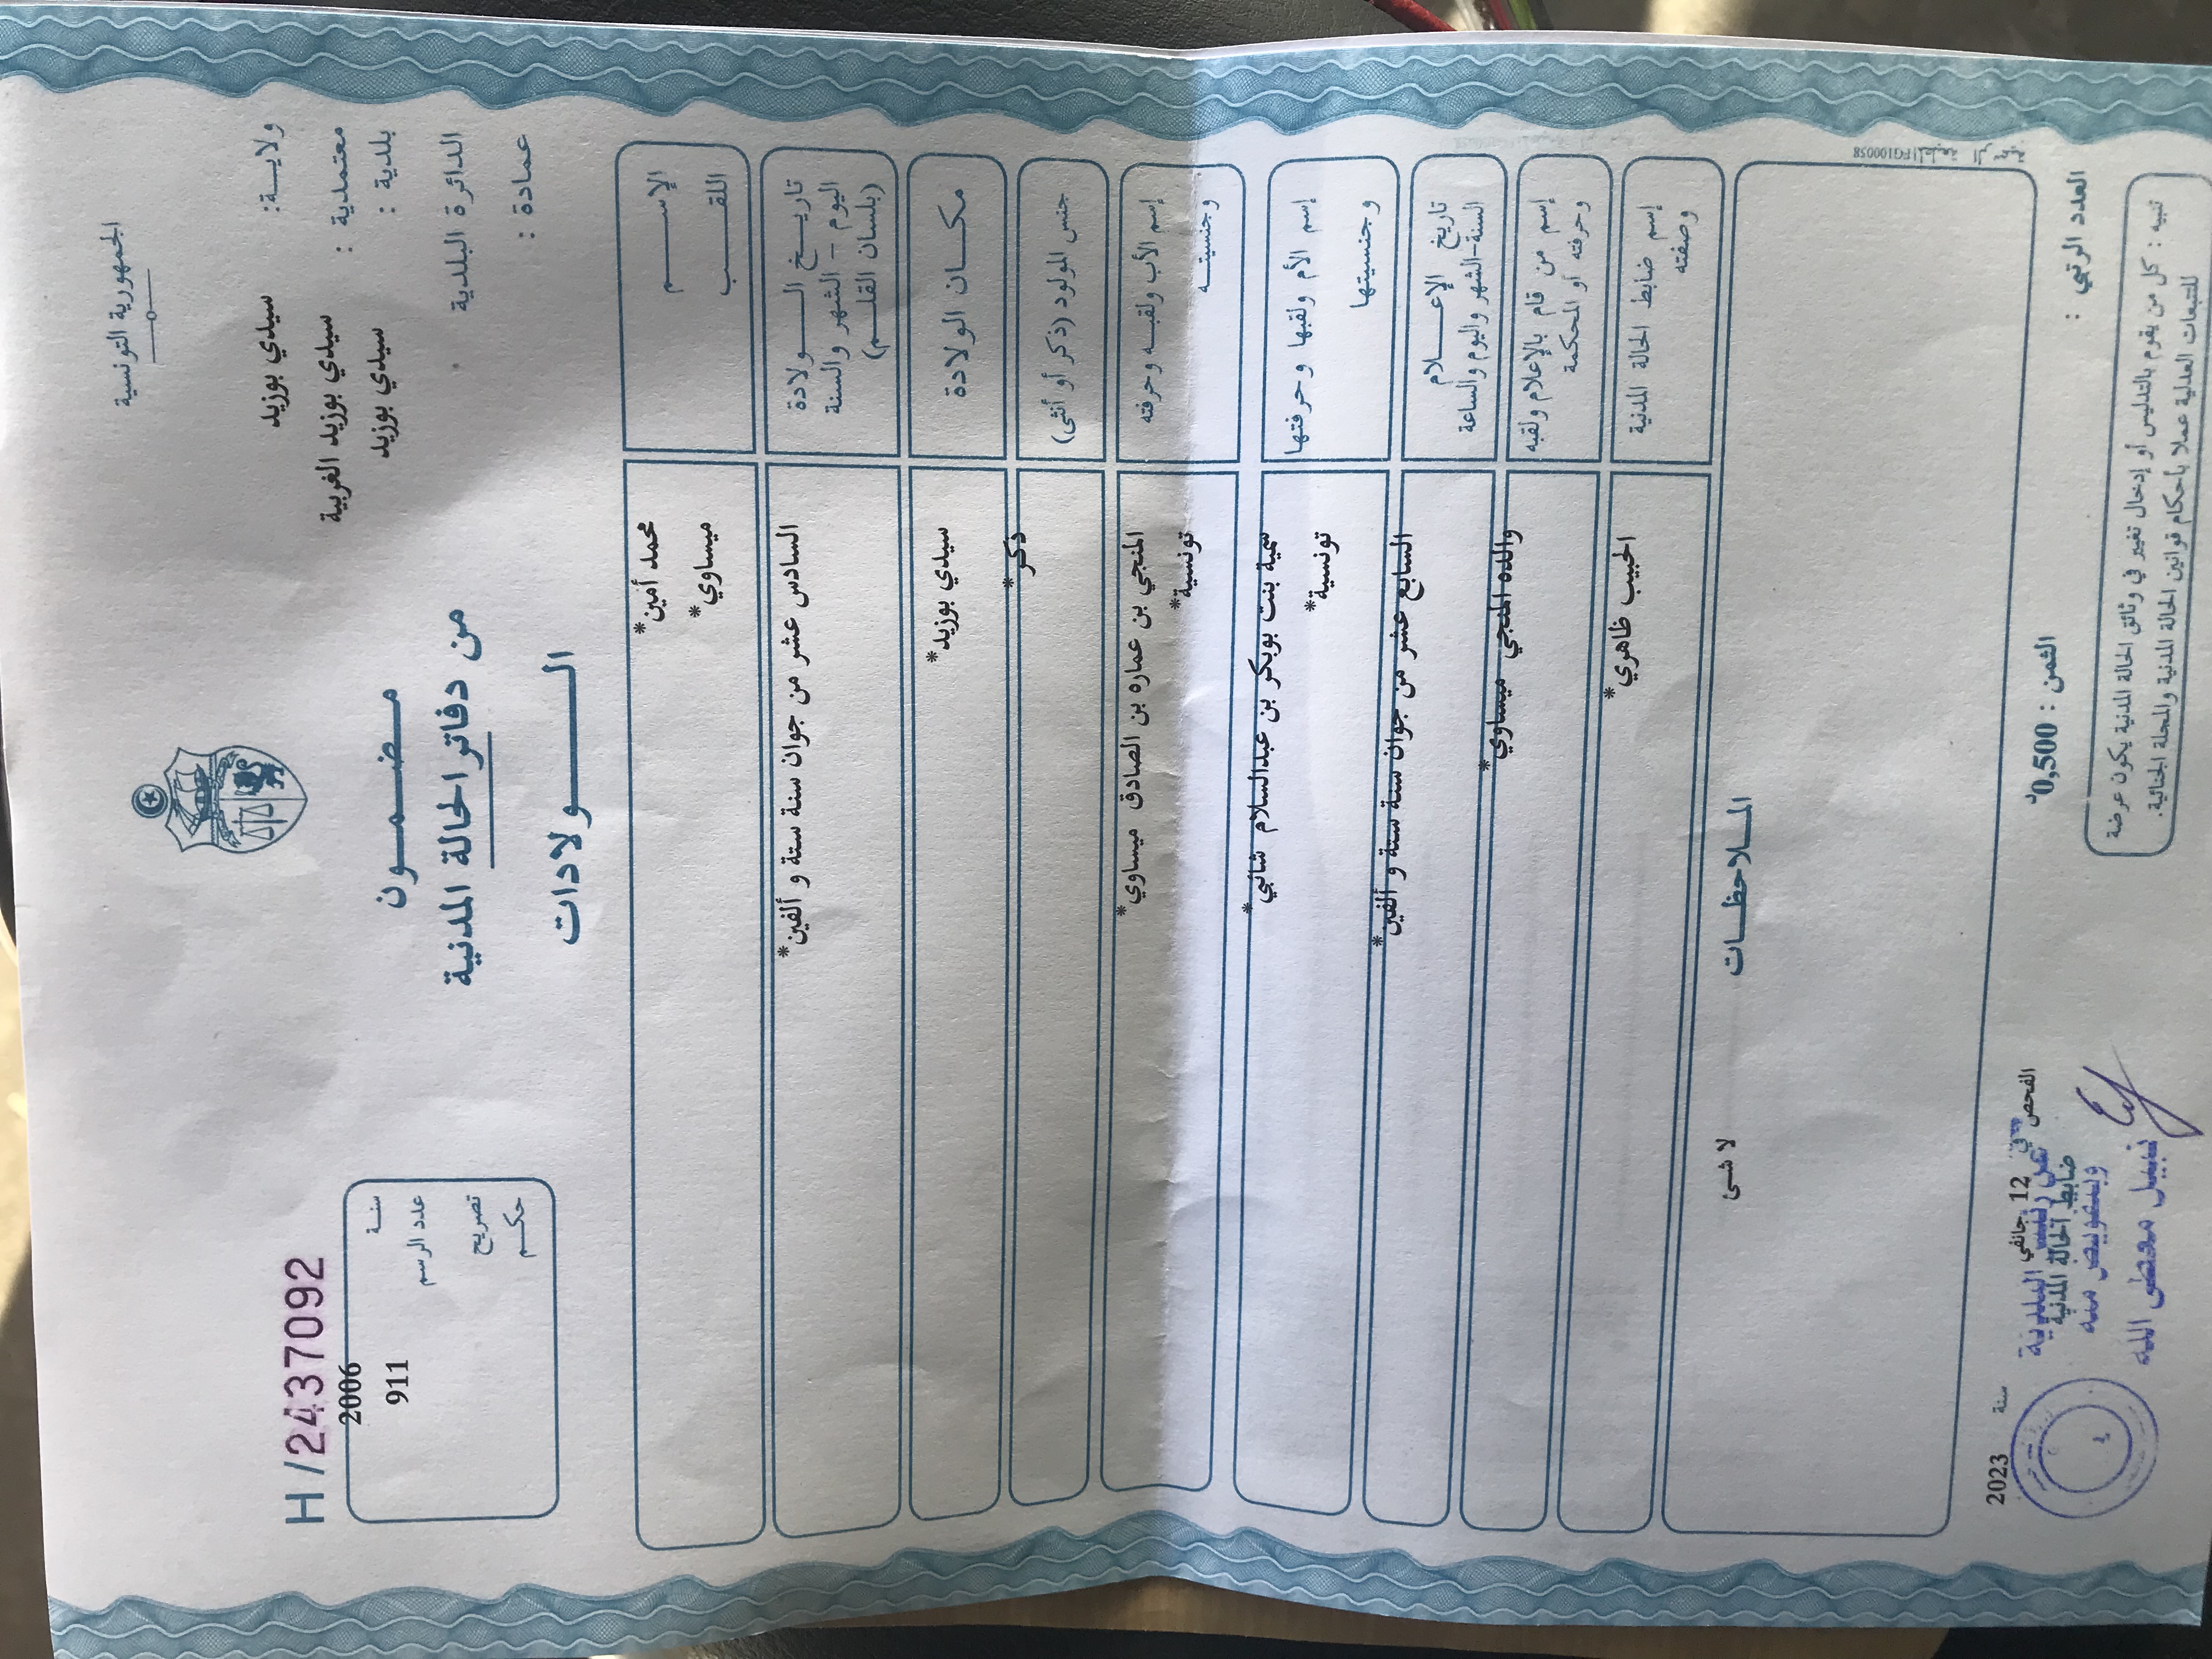 الجمهورية التونسية
ولايـــة: سيدي بوزيد
معتمدية : سيدي بوزيد الغربية
بلدية : سيدي بوزيد
الدائرة البلدية
عمادة :
مضـــمـــون
من دفاتر الحالة المدنية
الـــــولادات
H/2437092
سنـــة 2006
عدد الرسم 911
تصريح
حكـــم
الإســـــم محمد أمين*
اللقـــــب ميساوي*
تاريـــخ الـــــولادة
اليوم – الشهر والسنة
(بلسان القلـــم)
السادس عشر من جوان سنة ستة و ألفين*
مكـــان الولادة سيدي بوزيد*
جنس المولود (ذكر أو أنثى) ذكر*
إسم الأب ولقبـــه وحرفته المنجي بن عماره بن الصادق ميساوي*
وجنسيتـــه تونسية*
إسم الأم ولقبها وحرفتها سمية بنت بوبكر بن عبدالسلام شابي*
وجنسيتها تونسية*
تاريخ الإعـــــلام
السنة-الشهر واليوم والساعة
السابع عشر من جوان سنة ستة و ألفين*
إسم من قام بالإعلام ولقبه
وحرفته أو المحكمة
والده المنجي ميساوي*
إسم ضابط الحالة المدنية
وصفته
الحبيب ظاهري*
المـــلاحظـــات
لا شـئ
العدد الرتبي :
الثمن : 0,500د
في 12 جانفي سنة 2023
الفحص
ضابط الحالة المدنية
عن رئيس البلدية
وبتفويض منه
نبيل معطى الله
تنبيه : كل من يقوم بالتدليس أو إدخال تغيير في وثائق الحالة المدنية يكون عرضة
للتتبعات العدلية عملا بأحكام قوانين الحالة المدنية والمجلة الجنائية.